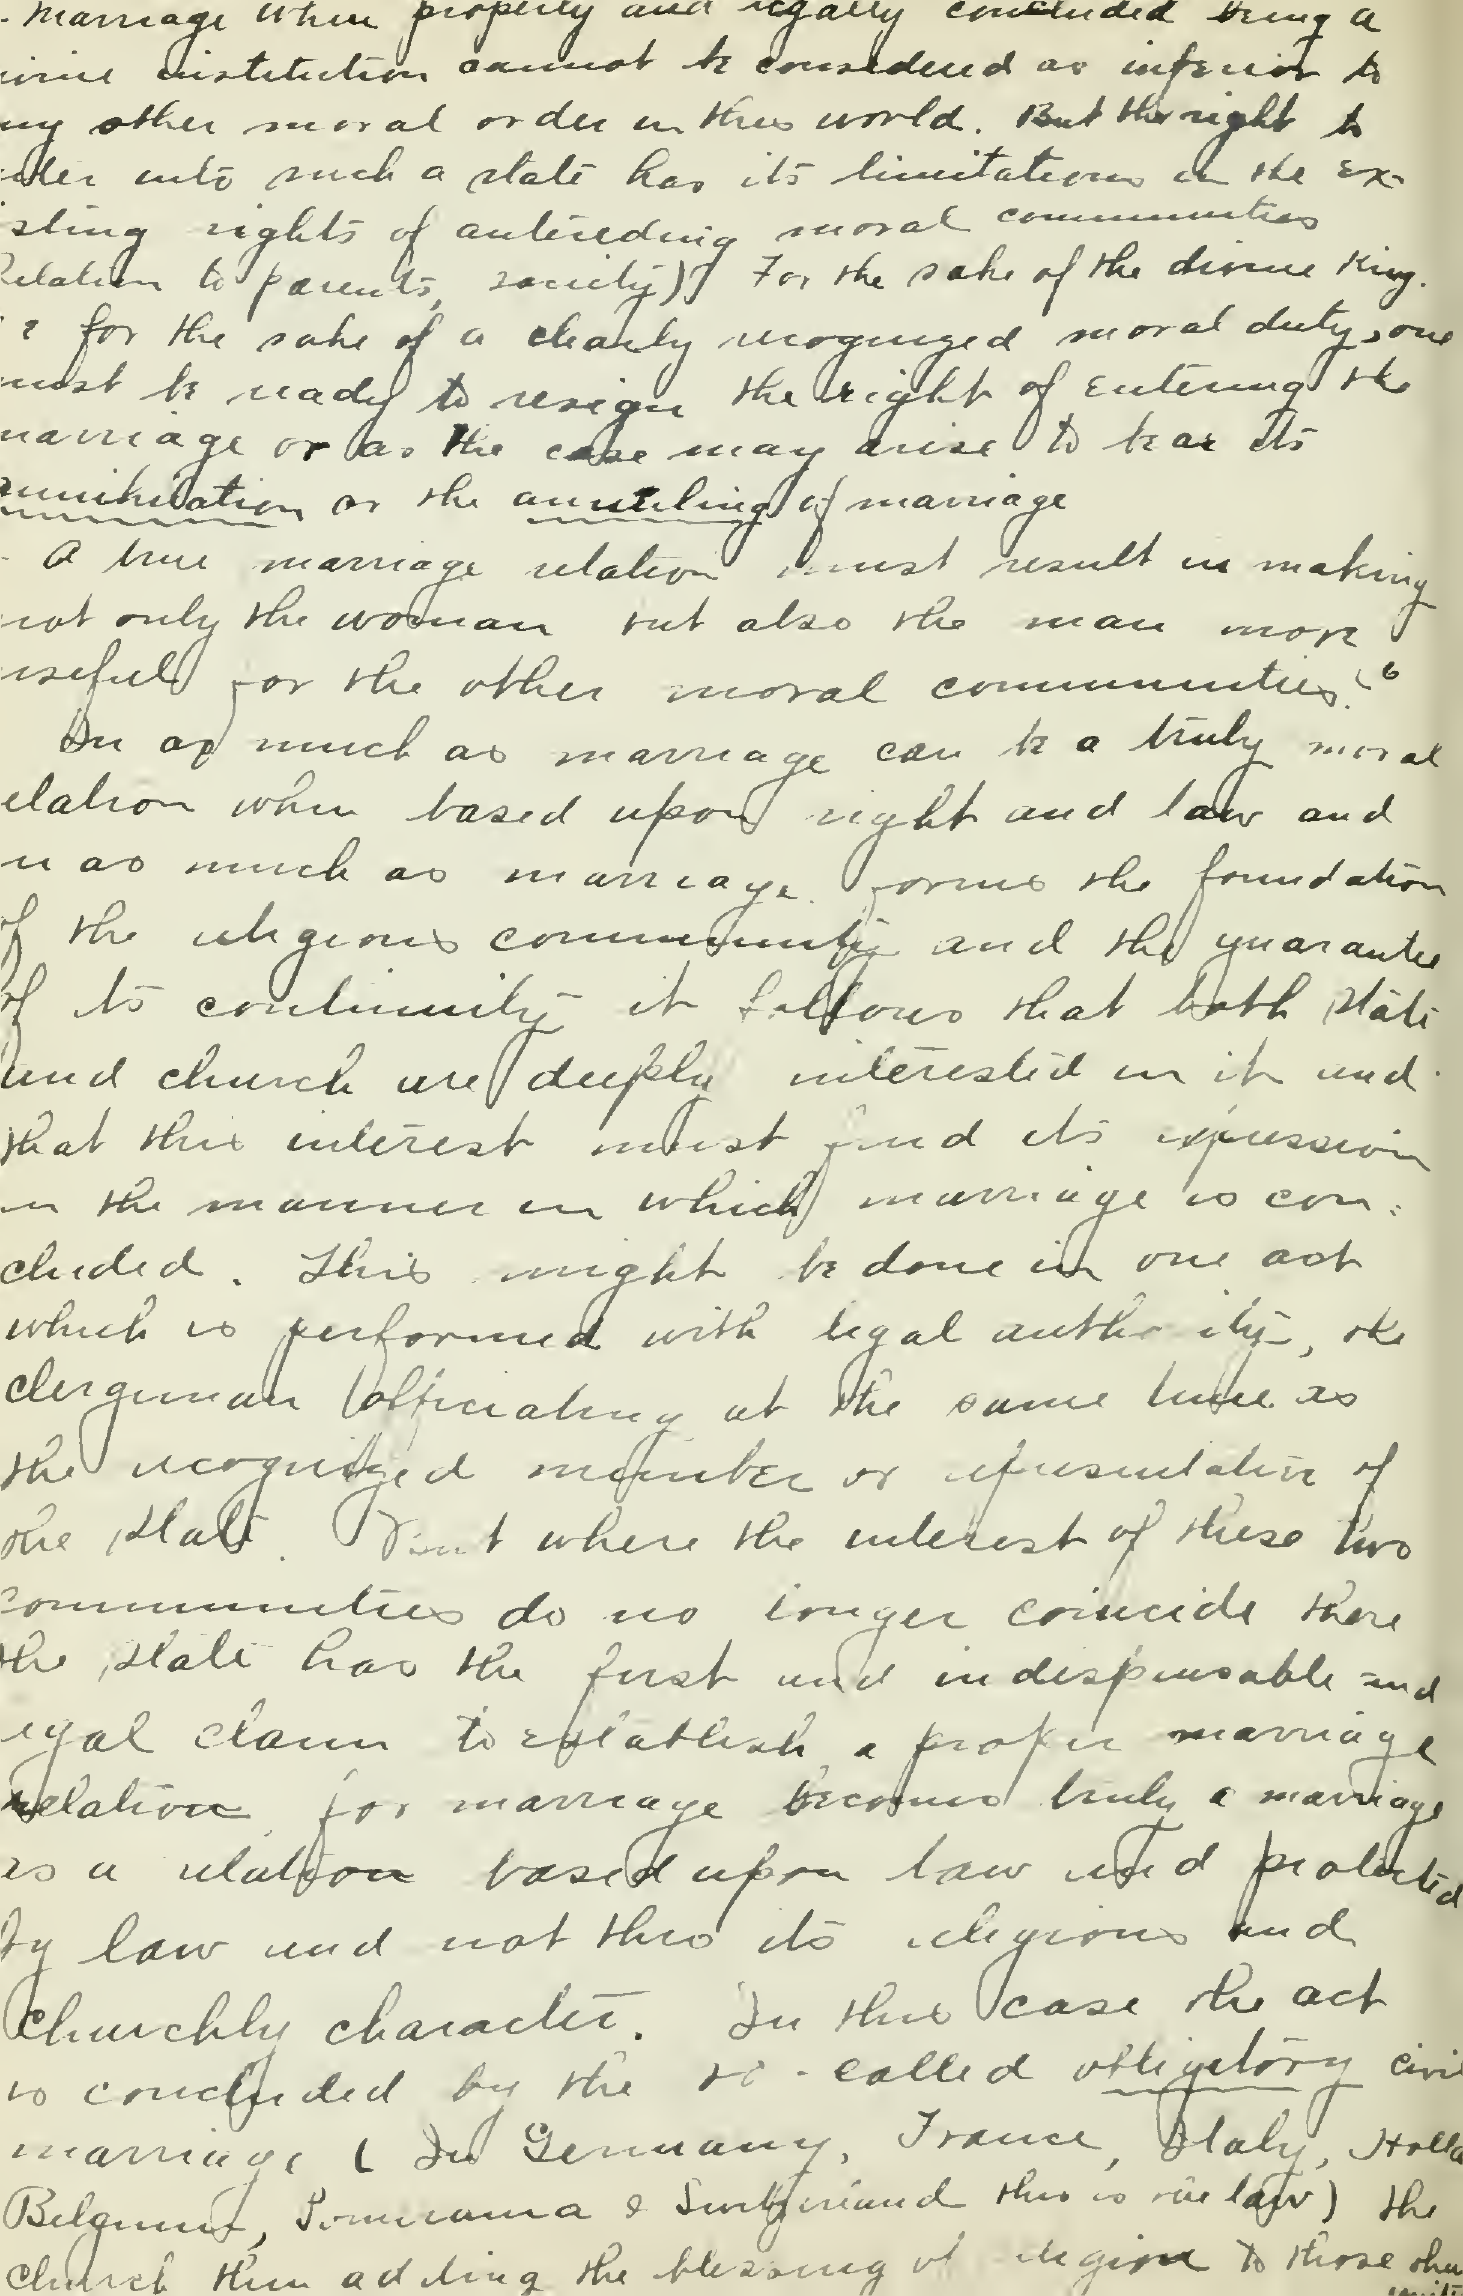 - Marriage when properly and legally concluded being a
ivine institution cannot be considered as inferior to
ny other moral order in this world. But the right to
nter into such a state has its limitations in the ex-
isting rights of anteceding moral communities
Relation to parents, society)) For the sake of the divine King.
i e for the sake of a clearly recognized moral duty, one
must be ready to resign the right of entering the
marriage or as the case may arise to bear its
annihilation or the annulling of marriage
- A true marriage relation must result in making
not only the woman but also the man more
useful for the other moral communities.
In as much as marriage can be a truly moral
elation when based upon right and law and
in as much as marriage forms the foundation
of the religious community and the guarantee
of its continuity it follows that both state
and church are deeply interested in it and
that this interest must find its expression
in the manner in which marriage is con:
cluded. This might be done in one act
which is performed with legal authority, the
clergyman officiating at the same time as
the recognized member or representative of
the state. But where the interest of these two
communities do no longer coincide there
the state has the first and indispensable and
legal claim to establish a proper marriage
relation for marriage becomes truly a marriage
as a relation based upon law and protected
by law and not thro its religious and
churchly character. In this case the act
is concluded by the so-called obligatory civil
marriage ( In Germany, France, Italy, Holla
Belgium, & Switzerland this is the law) the
church then adding the blessing of religion to those